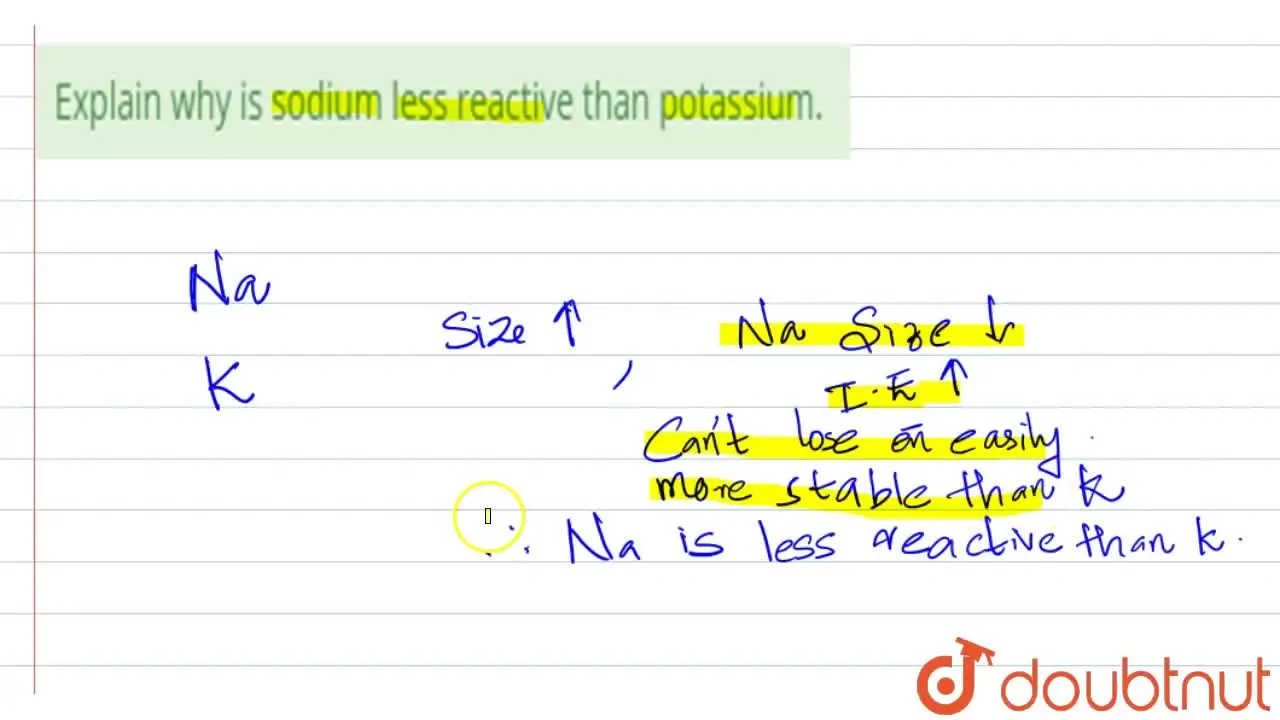 Explain why is sodium less reactive than potassium.
Na
Size ↑
Na Size ↓
K
I.E ↑
Can't lose en easily.
more stable than K
∴ Na is less reactive than K.
doubtnut